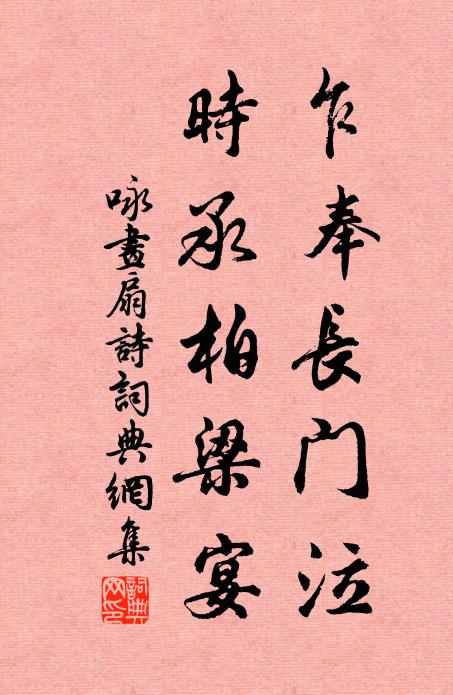 乍奉長門泣
時承柏梁宴
咏畫扇詩詞典網集
詞典網印